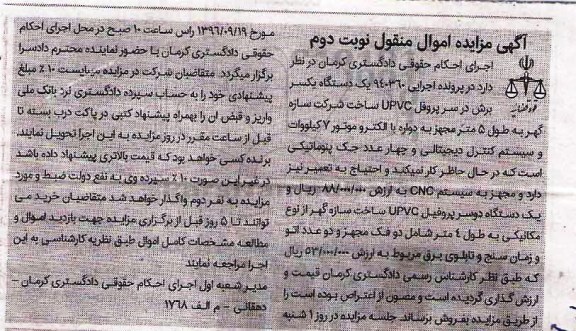 آگهی مزایده اموال منقول نوبت دوم
اجرای احکام حقوقی دادگستری کرمان در نظر
دارد در پرونده اجرایی ۹۴۰۳۶۰ یک دستگاه یکسر
برش در سر پروفل UPVC ساخت شرکت سازه
گهر به طول ۵ متر مجهز به دواره با الکترو موتور ۷ کیلووات
و سیستم کنترل دیجیتالی و چهار عدد جک پنوماتیکی
است که در حال حاظر کار نمیکند و احتیاج به تعمیر نیز
دارد و مجهز به سیستم CNC به ارزش ۸۸/۰۰۰/۰۰۰ ریال و
یک دستگاه دوسر پروفیل UPVC ساخت سازه گهر از نوع
مکانیکی به طول ٤ متر شامل دو فک مجهز و دو عدد اتو
و زمان سنج و تابلوی برق مربوط به ارزش ۵۲/۰۰۰/۰۰۰ ریال
که طبق نظر کارشناس رسمی دادگستری کرمان قیمت و
ارزش گذاری گردیده است و مصون از اعتراض بوده است را
از طریق مزایده بفروش برساند جلسه مزایده در روز ۱ شنبه
مورخ ۱۳۹۶/۰۹/۱۹ راس ساعت ۱۰ صبح در محل اجرای احکام
حقوقی دادگستری کرمان با حضور نماینده محترم دادسرا
برگزار میگردد. متقاضیان شرکت در مزایده میبایست ۱۰٪ مبلغ
پیشنهادی خود را به حساب سپرده دادگستری نزد بانک ملی
واریز و قبض ان را بهمراه پیشنهاد کتبی در پاکت درب بسته تا
قبل از ساعت مقرر در روز مزایده به این اجرا تحویل نمایند،
برنده کسی خواهد بود که قیمت بالاتری پیشنهاد داده باشد
در غیر این صورت ۱۰٪ سپرده وی به نفع دولت ضبط و مورد
مزایده به نفر دوم واگذار خواهد شد متقاضیان خرید می
توانند تا ۵ روز قبل از برگزاری مزایده جهت بازدید اموال و
مطالعه مشخصات کامل اموال طبق نظریه کارشناسی به این
اجرا مراجعه نمایند
مدیر شعبه اول اجرای احکام حقوقی دادگستری کرمان -
دهقانی - م الف ۱۷۶۸